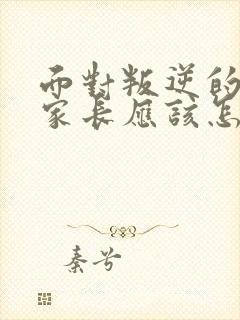 而對叛逆的
家長應該怎
秦兮